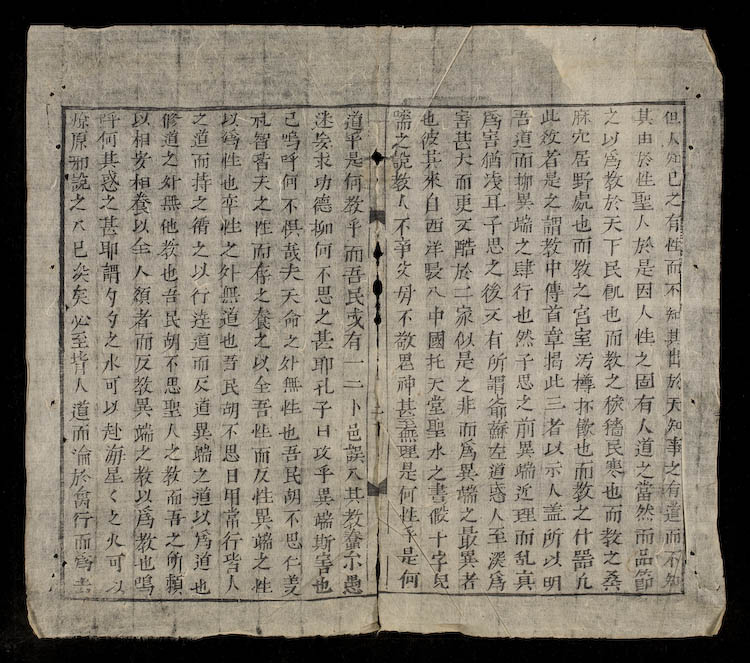 但人知已之有性而不知其出於天知事之有道而不知
其由於性聖人於是因人性之固有人道之當然而品節
之以爲教於天下民飢也而教之稼穡民寒也而教之桑
麻穴居野處也而教之宮室汚樽抔飲也而教之什器凢
此教若是之謂教中傳首章揭此三者以示人盖所以明
吾道而抑異端之肆行也然子思之前異端近理而乱真
爲害猶淺耳子思之後又有所謂爺蘇左道惑人至深爲
害甚大而更又酷於二家似是之非而爲異端之最異者
也彼其來自西洋駸入中國托天堂聖水之書假十字兒
之說教人不爭父母不敬神甚無理是何性乎是何
道乎是何教乎而吾民或有一二卜邑誤入其教蠢尒愚
迷妄求功德抑何不思之甚耶孔子曰攻乎異端斯害也
已嗚呼何不惧哉夫天命之外無性也吾民胡不思仁義
礼智者夫之性而存之養之以全吾性而反性異端之性
以爲性也率性之外無道也吾民胡不思日用常行皆人
之道而持之循之以行達道而反道異端之道以爲道也
修道之外無他教也吾民胡不思聖人之教而吾之所賴
以相安相養以全人類者而反教異端之教以爲教也嗚
呼何其惑之甚耶謂勺勺之水可以赴海星々之火可以
燎原邪說之入已矣必至皆人道而淪於禽行而爲